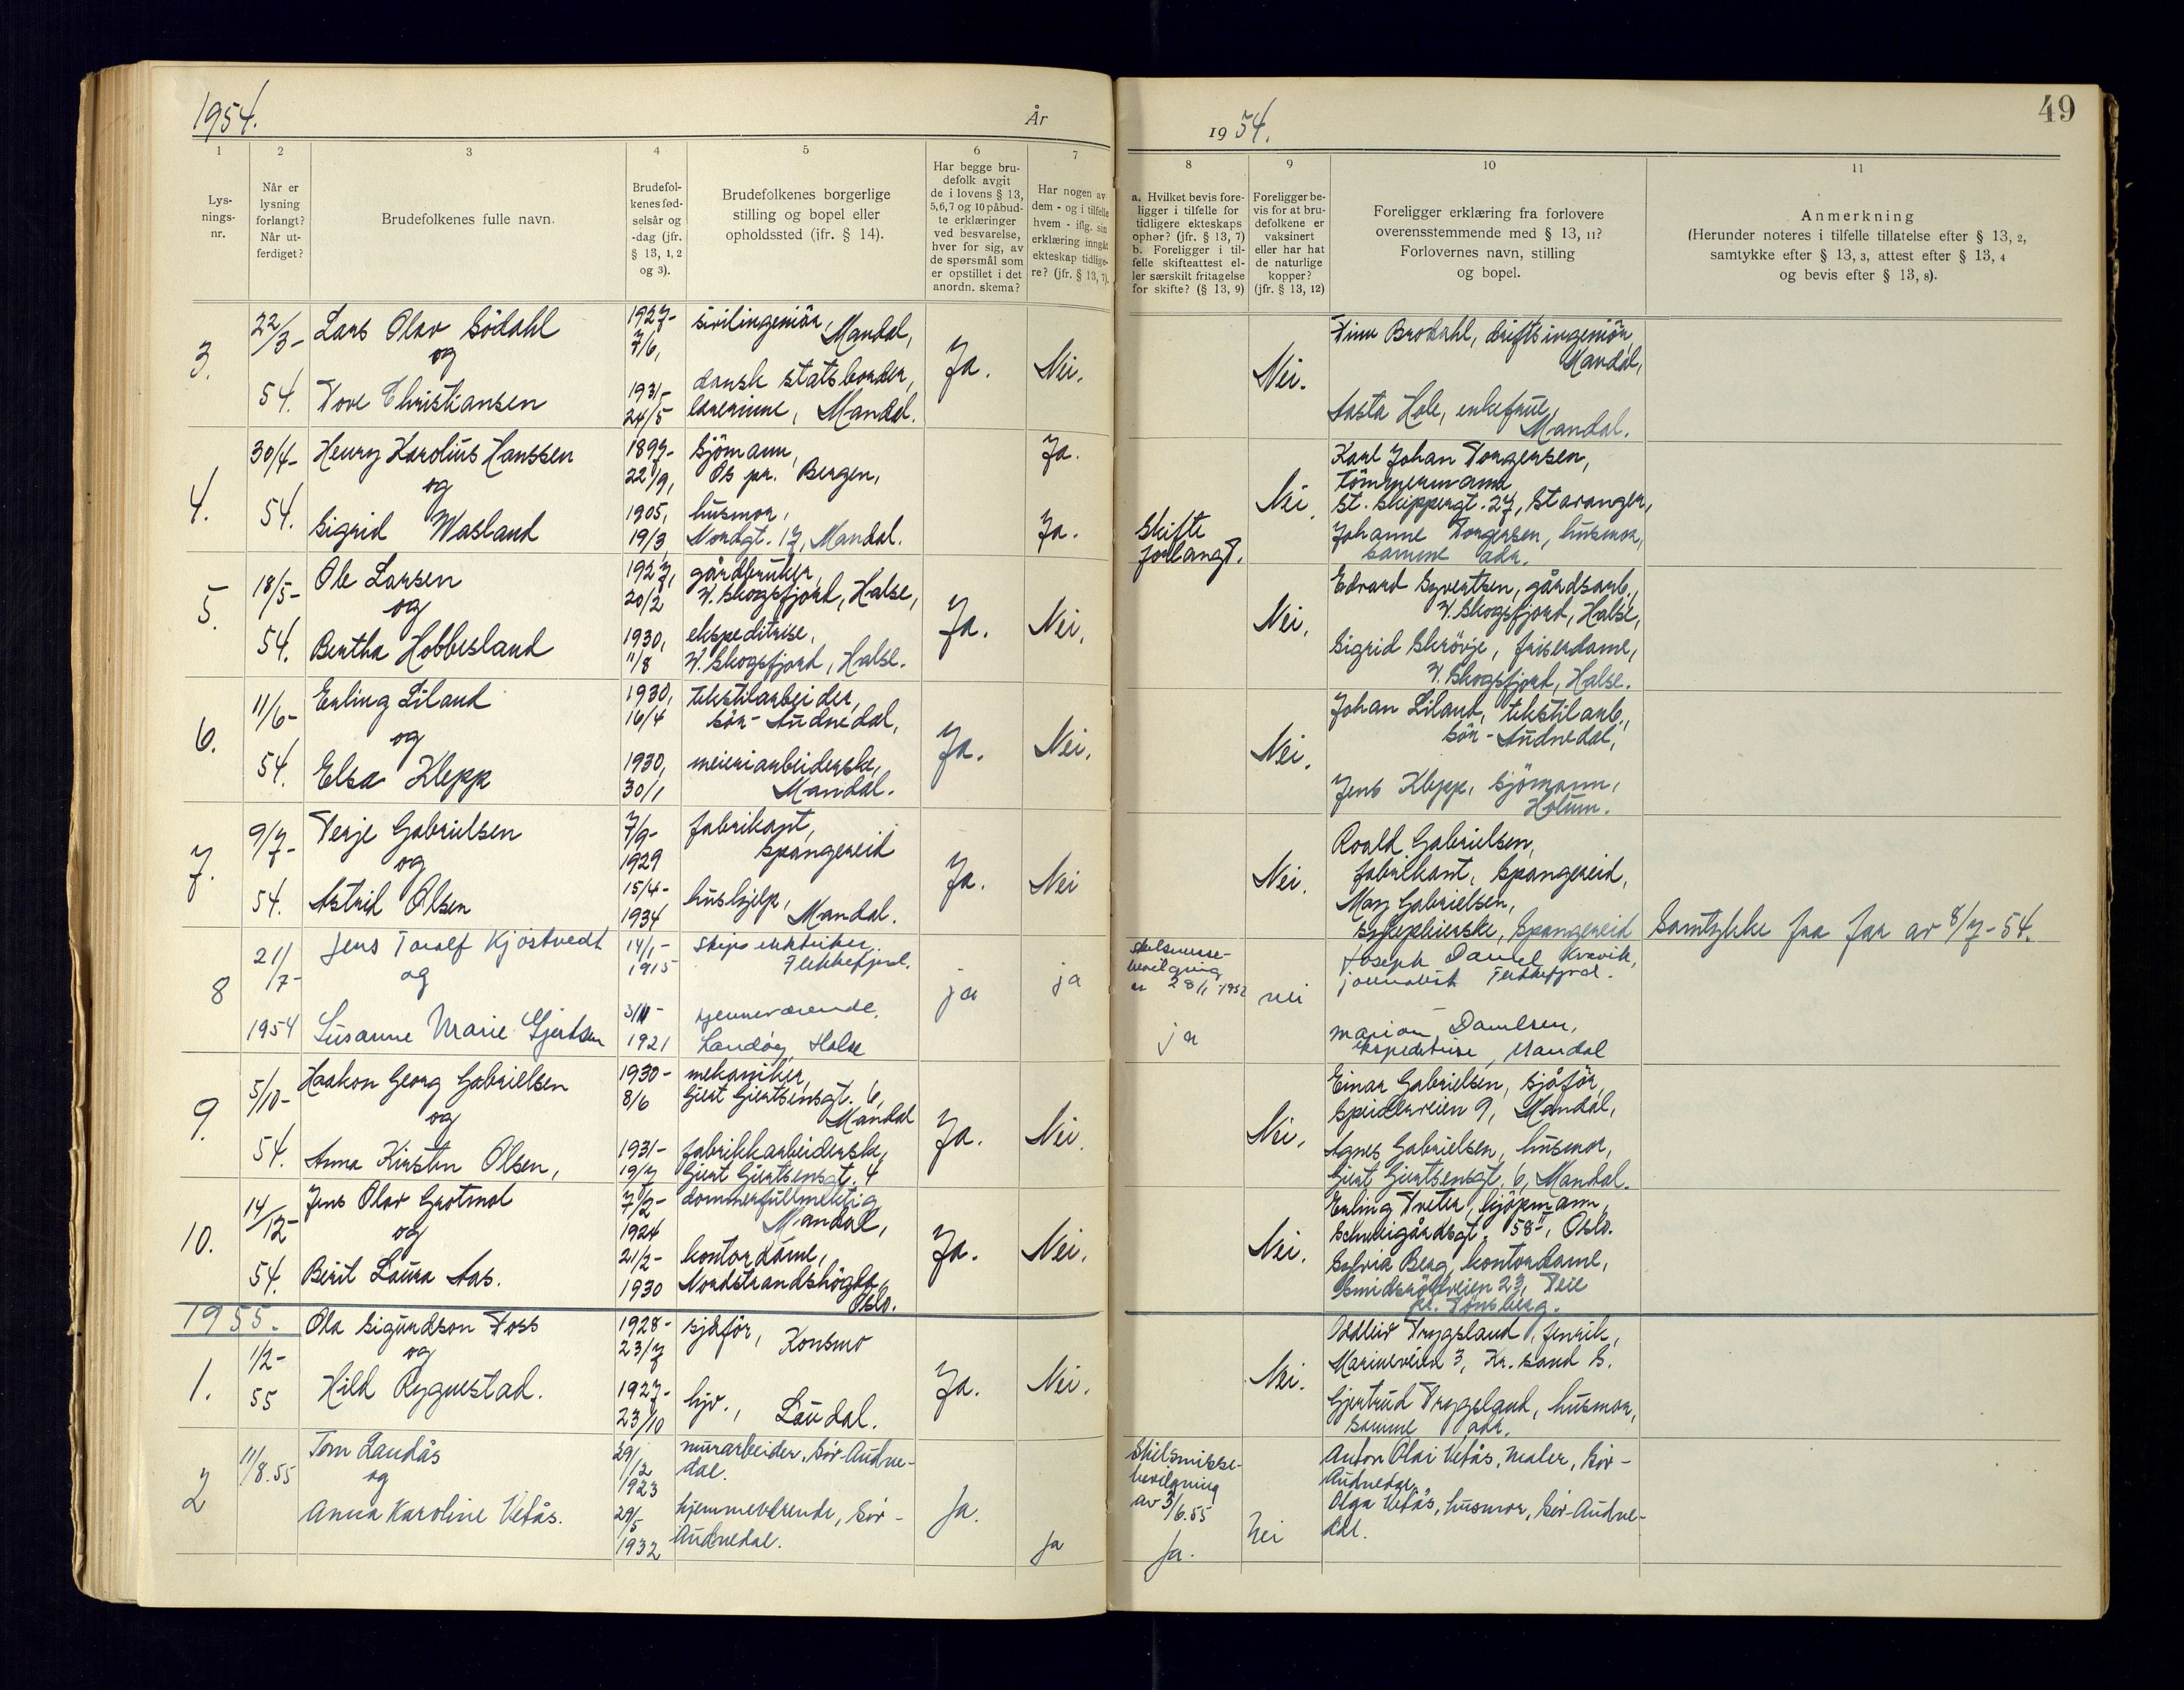 1954.
År
1954.
49
1
2
3
4
5
6
7
8
9
10
11
Lys-
nings-
nr.
Når er
lysning
forlangt?
Når ut-
ferdiget?
Brudefolkenes fulle navn.
Brudefol-
kenes fød-
selsår og
-dag (jfr.
§ 13, 1, 2
og 3).
Brudefolkenes borgerlige
stilling og bopel eller
opholdssted (ifr. § 14).
Har begge bru-
defolk avgit
de i lovens § 13,
5,6,7 og 10 påbud-
te erklæringer
ved besvarelse,
hver for sig, av
de spørsmål som
er opstillet i det
anordn. skema?
Har nogen av
dem - og i tilfelle
hvem - iflg. sin
erklæring inngått
ekteskap tidlige-
re? (jfr. § 13, 7).
a. Hvilket bevis fore-
ligger i tilfelle for
tidligere ekteskaps
ophør? (jfr. § 13, 7)
b. Foreligger i til-
felle skifteattest el-
ler særskilt fritagelse
for skifte? (§ 13, 9)
Foreligger be-
vis for at bru-
defolkene er
vaksinert
eller har hat
de naturlige
kopper?
(jfr. § 13, 12)
Foreligger erklæring fra forlovere
overensstemmende med § 13, 11?
Forlovernes navn, stilling
og bopel.
Anmerkning
(Herunder noteres i tilfelle tillatelse efter § 13, 2,
samtykke efter § 13, 3, attest efter § 13, 4
og bevis efter § 13, 8).
3.
22/3-
54.
Lars Olav Södahl
og
Tove Christiansen
1927-
7/6,
1931-
24/5
sivilingeniör,
Mandal,
dansk statsborger,
lærerinne, Mandal.
Ja.
Nei.
Nei.
Brodahl, driftsingeniör,
Mandal,
Aasta Hole, enkefrue,
Mandal.
4.
30/4-
54.
Henry Karolius Hanssen
og
Sigrid Wasland
1897-
22/9,
1905,
19/3
sjömann,
Os pr. Bergen,
husmor,
Nordgt. 17, Mandal.
Ja.
Ja.
Skifte
forlangt.
Nei.
Karl Johan Torgersen,
tömmermann
St. Skippergt. 27, Stavanger,
Johanne Torgersen, husmor,
samme adr.
5.
18/5-
54.
Ole Larsen
og
Bertha Hobbesland
1927,
20/2
1930,
11/8
gårdbruker,
V. Skogsfjord, Halse,
ekspeditrise,
V. Skogsfjord, Halse.
Ja.
Nei.
Nei.
Edvard Syvertsen, gårdsarb.,
V. Skogsfjord, Halse,
Sigrid Skrövje, friserdame,
V. Skogsfjord, Halse.
6.
11/6-
54.
Erling Liland
og
Elsa Klepp
1930,
16/4
1930,
30/1
tekstilarbeider,
Sör-Audnedal,
meieriarbeiderske,
Mandal.
Ja.
Nei.
Nei.
Johan Liland, tekstilarb.,
Sör-Audnedal,
Jens Klepp, sjömann,
Holum.
7.
9/7-
54.
Terje Gabrielsen
og
Astrid Olsen
7/9-
1929
15/4-
1934
fabrikant,
Spangereid
hushjelp,
Mandal.
Ja.
Nei
Nei.
Roald Gabrielsen,
fabrikant, Spangereid,
Mary Gabrielsen,
sykepleierske, Spangereid
Samtykke fra far av 8/7-54.
8
21/7-
1954
Jens Toralf Kjöstvedt
og
Susanne Marie Gjertsen
14/1-
1915
3/11-
1921
Skipselektriker
Flekkefjord.
hjemmeværende,
Landöy, Halse
ja
ja
Skilsmisse-
bevilgning
av 28/1 1952
ja
nei
Joseph Daniel Kvavik,
journalist Flekkefjord.
Marion Danielsen,
ekspeditrise, Mandal
9.
5/10-
54.
Haakon Georg Gabrielsen
og
Anna Kirsten Olsen,
1930-
8/6
1931-
19/7
mekaniker,
Giert Giertsensgt. 6,
Mandal
fabrikkarbeiderske,
Giert Giertsensgt. 4
Ja.
Nei.
Nei.
Einar Gabrielsen, sjåför,
Speiderveien 9, Mandal,
Agnes Gabrielsen, husmor,
Giert Giertsensgt. 6, Mandal.
10.
14/12-
54.
Jens Olav Grotmol
og
Berit Laura Aas.
7/2-
1924
21/2-
1930
dommerfullmektig
Mandal,
kontordame,
Nordstrandshögda,
Oslo.
Ja.
Nei.
Nei.
Erling Tveter, kjöpmann,
Schweigårdsgt. 58II, Oslo.
Sylvia Berg, kontordame,
Smidsrödveien 23, Teie
pr. Tönsberg.
1955.
1.
1/2-
55
Ola Sigurdson Foss
og
Hild Rygnestad.
1928-
23/7
1927-
23/10
sjåför, Konsmo
hjv., Laudal.
Ja.
Nei.
Nei.
Oddleiv Trygsland, fenrik,
Marineveien 3, Kr.sand S.
Gjertrud Trygsland, husmor,
samme adr.
2
11/8.55
Tom Landås
og
Anna Karoline Vetås.
29/12
1923
29/5
1932
murarbeider, Sör-Audne-
dal.
hjemmeværende, Sör-
Audnedal.
Ja.
Ja
Skilsmisse-
bevilgning
av 3/6.55
Ja.
Nei
Anton Olai Vetås, maler, Sör-
Audnedal.,
Olga Vetås, husmor, Sör-Audne-
dal.